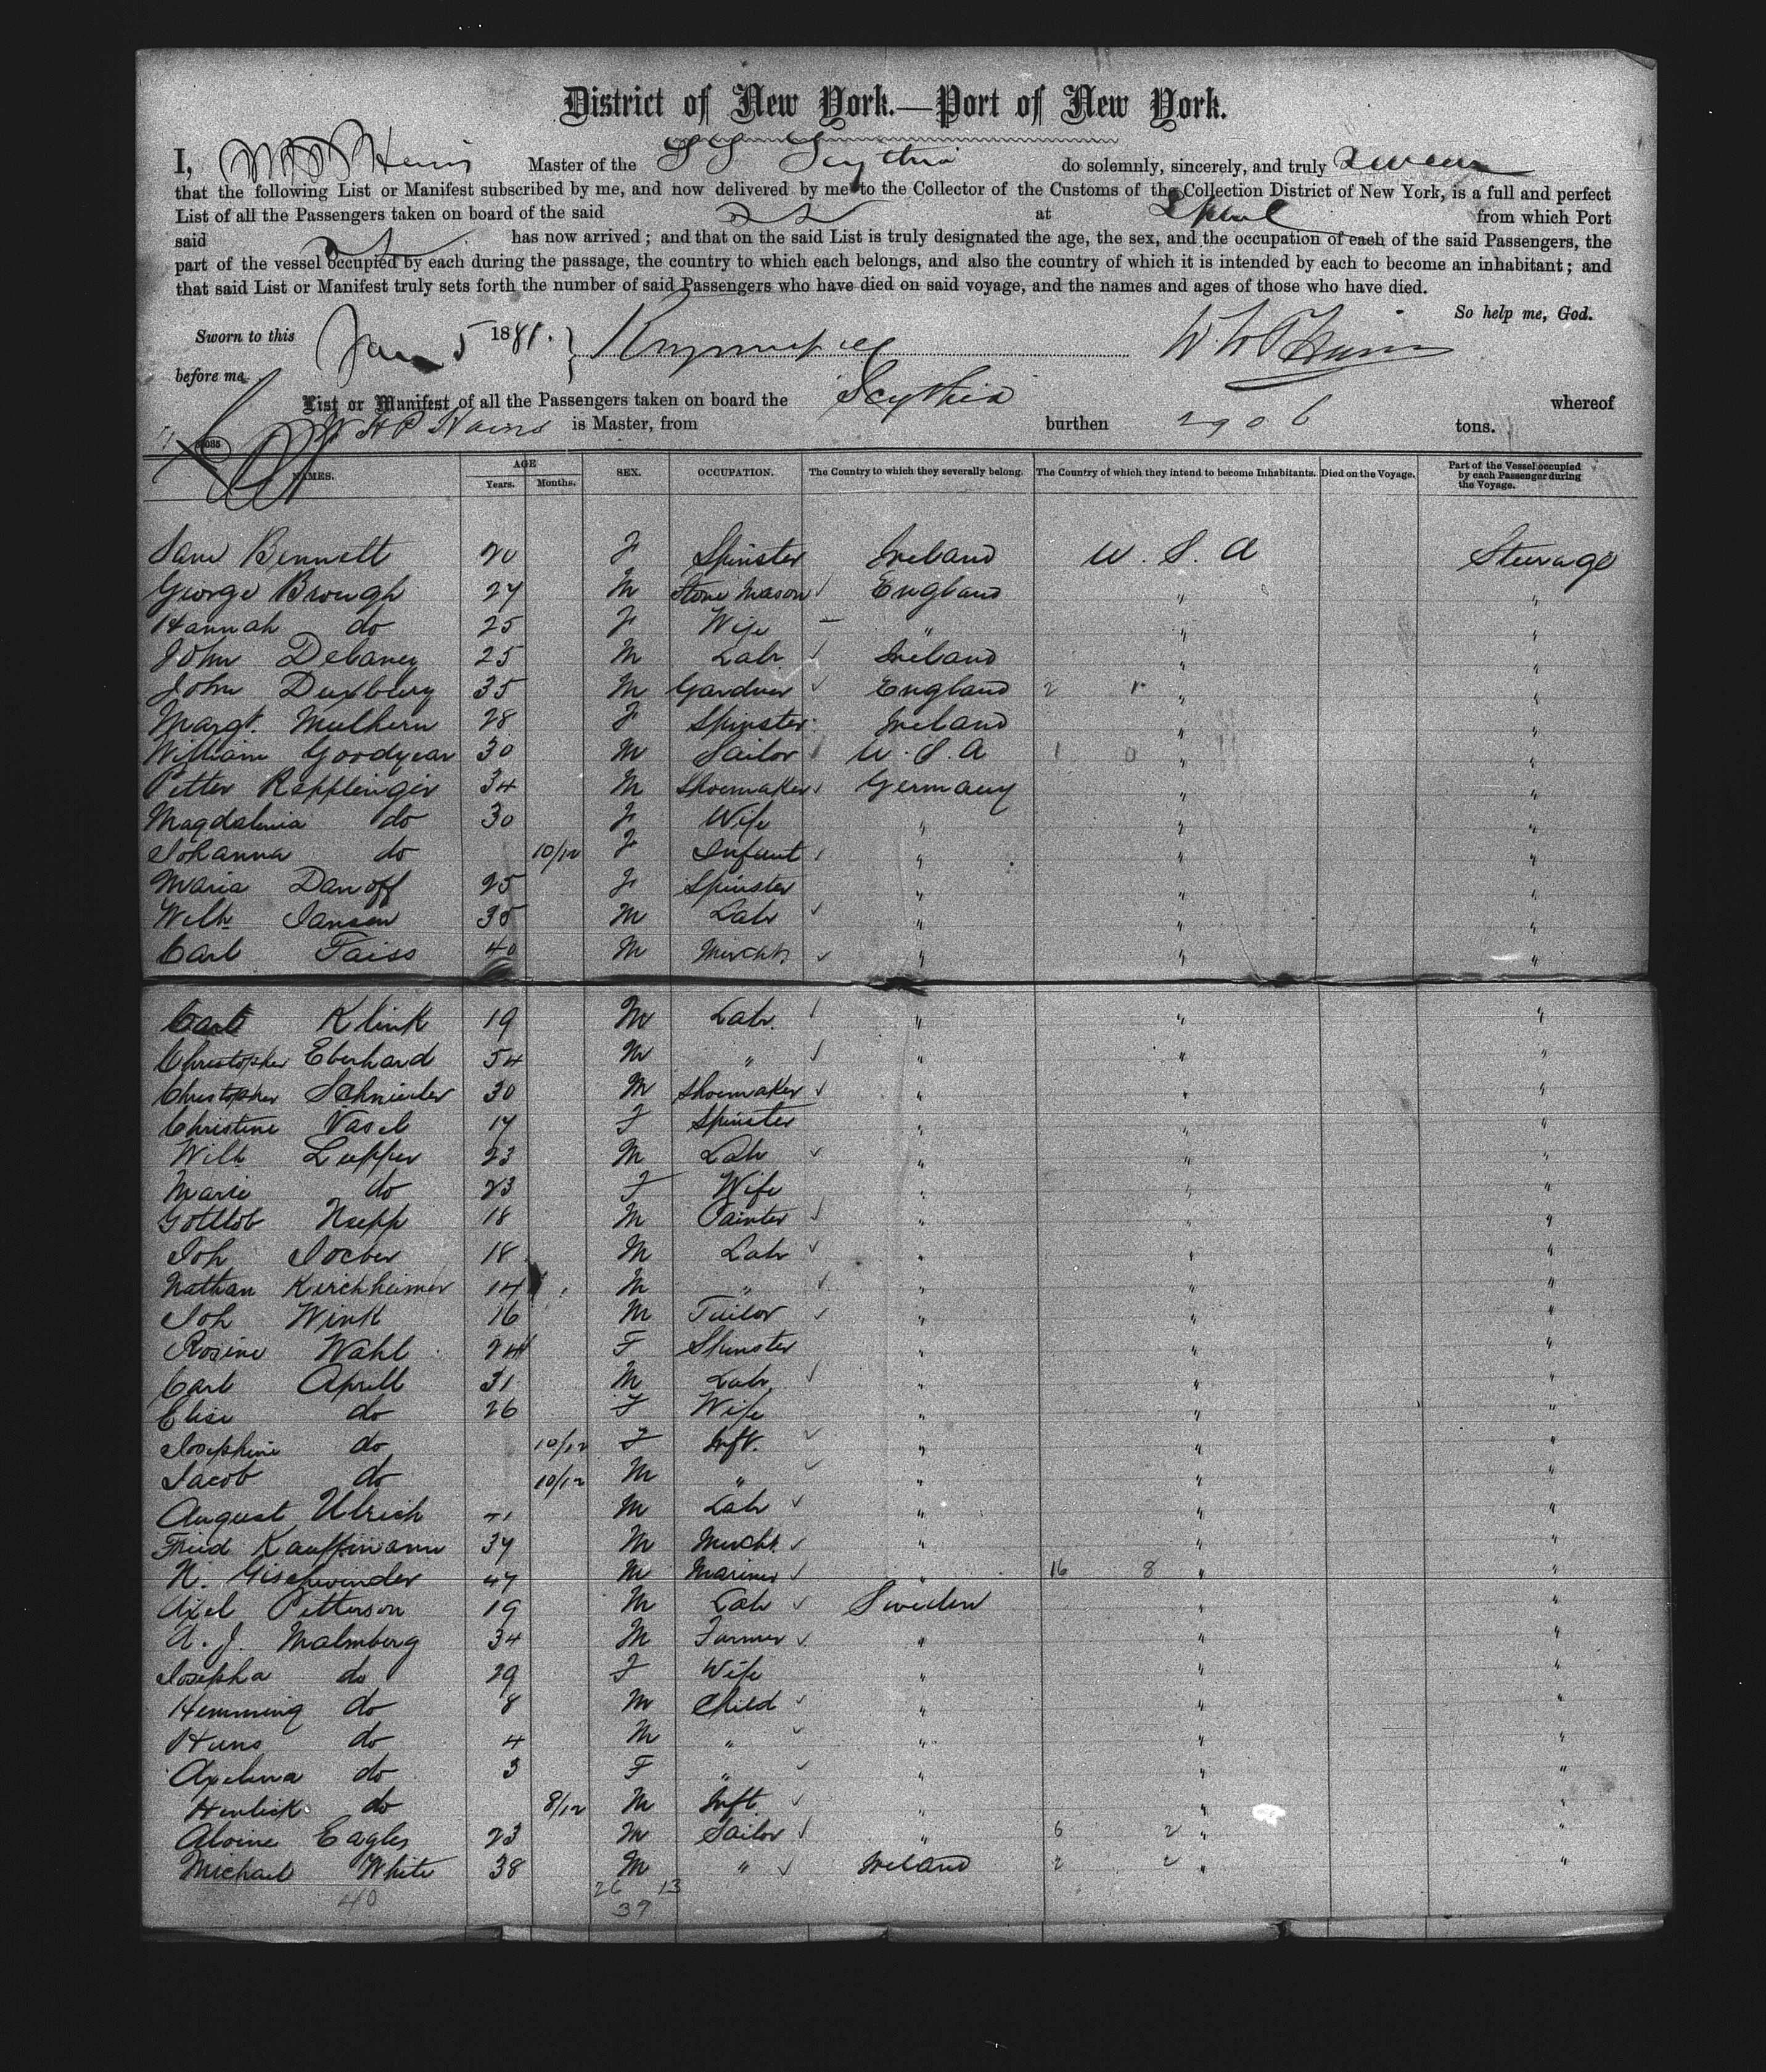 District of New York.—Port of New York.
I, Master of the S S Scythia do solemnly, sincerely, and truly swear
that the following List or Manifest subscribed by me, and now delivered by me to the Collector of the Customs of the Collection District of New York, is a full and perfect
List of all the Passengers taken on board of the said at Lpool from which Port
said has now arrived; and that on the said List is truly designated the age, the sex, and the occupation of each of the said Passengers, the
part of the vessel occupied by each during the passage, the country to which each belongs, and also the country of which it is intended by each to become an inhabitant; and
that said List or Manifest truly sets forth the number of said Passengers who have died on said voyage, and the names and ages of those who have died.
So help me, God.
Sworn to this Jan 5 1881.
before me
List or Manifest of all the Passengers taken on board the Scythia whereof
W H P Hains is Master, from burthen 2906 tons.
NAMES. AGE Years. Months. SEX. OCCUPATION. The Country to which they severally belong. The Country of which they intend to become Inhabitants. Died on the Voyage. Part of the Vessel occupied by each Passenger during the Voyage.
Jane Bennett 20 F Spinster Ireland U. S. A Steerage
George Brough 27 M Stone Mason England " "
Hannah do 25 F Wife " " "
John Delaney 25 M Labr Ireland " "
John Duxbury 35 M Gardner England 2 " "
Margt. Mulhern 28 F Spinster Ireland " "
William Goodyear 30 M Sailor U. S. A 1 0 " "
Petter Repplenger 34 M Shoemaker Germany " "
Magdalenia do 30 F Wife " " "
Johanna do 10/12 F Infant " " "
Maria Danoff 25 F Spinster " " "
Wilh Jansen 35 M Labr " " "
Carl Faiss 40 M Mercht. " " "
Carl Klink 19 M Labr. " " "
Christopher Eberhard 54 M " " " "
Christopher Schnieder 30 M Shoemaker " " "
Christine Vasel 17 F Spinster " " "
Wilh Lupper 23 M Labr " " "
Marie do 23 F Wife " " "
Gottlob Knepp 18 M Painter " " "
Joh Jocber 18 M Labr " " "
Nathan Kirchheimer 14 M " " " "
Joh Wink 16 M Tailor " " "
Rosine Wahl 24 F Spinster " " "
Carl Aprell 31 M Labr " " "
Elise do 26 F Wife " " "
Josephine do 10/12 F Inft. " " "
Jacob do 10/12 M " " " "
August Ulrich M Labr " " "
Fried Kauffmann 34 M Mercht. " " "
N. Gischwinder 47 M Mariner " 16 8 " "
Axel Petterson 19 M Labr Sweden " "
A. J. Malmberg 34 M Farmer " " "
Josepha do 29 F Wife " " "
Hemming do 8 M Child " " "
Hans do 4 M " " " "
Axelina do 3 F " " " "
Henlick do 8/12 M Inft. " " "
Aloine Eagles 23 M Sailor " 6 2 " "
Michael White 38 M " Ireland 2 2 " "
40 26 13
39